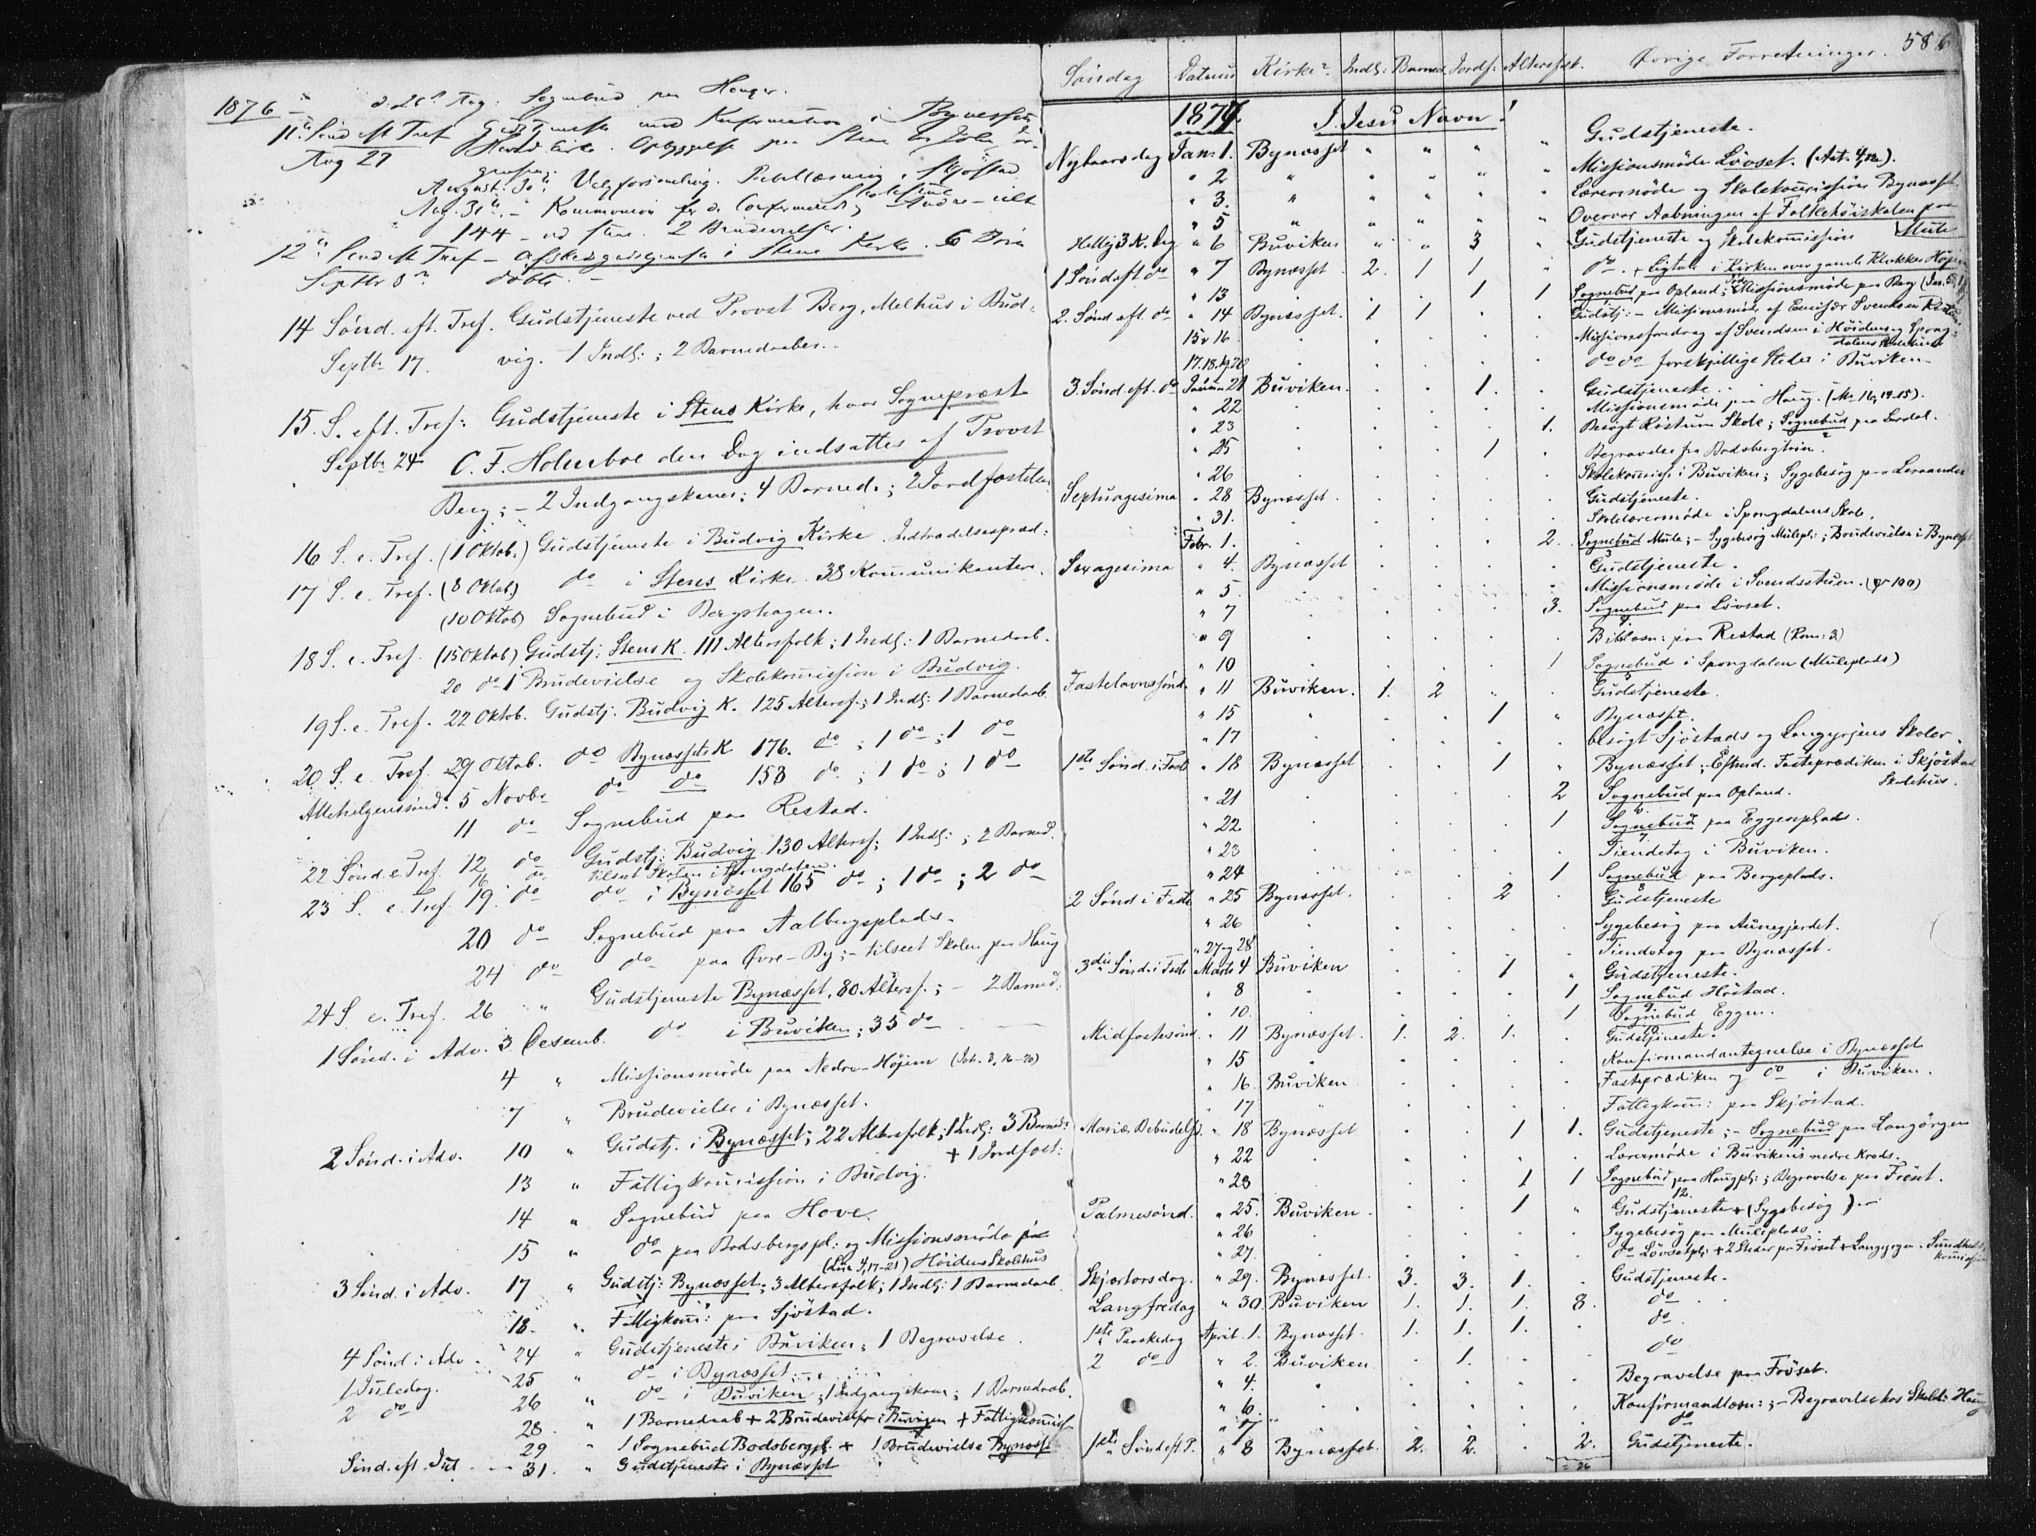 1876 – d. 26de Aug: Sognebud paa Hanger.
11te Sønd eft Tref Gudstjeneste med Konfirmation i Bynesset
Aug 27
August 30te Valgforsamling. Bibellæsning i Skjøstad
Aug. 31te – Kommunion for de Confirmerede
144 – ved Stene. 2 Brudevielser.
12te Sønd eft Tref – Afskedsgudstjeneste i Stens Kirke. 6 Børn
Septbr 3die døbte. –
14 Sønd. eft. Tref. Gudstjeneste ved Provst Berg, Melhus i Bud-
Septbr. 17. vig. 1 Indl: ; 2 Barnedaaber.
15. S. eft. Tref: Gudstjeneste i Stens Kirke, hvor Sognepræst
Septbr 24 C. F. Holmboe den Dag indsattes af Provst
Berg; – 2 Indgangskoner; 4 Barned.; 2 Jordfæstelser
16 S. e. Tref. (1 Oktob.) Gudstjeneste i Budvig Kirke. Indtrædelsespræd:
17 S. e. Tref. (8 Oktob.) do i Stens Kirke. 38 Kommunikanter.
(10 Oktob) Sognebud i Bergshagen.
18 S. e. Tref. (15 Oktob) Gudstj: Stens K. 111 Altersfolk; 1 Indl: 1 Barnedaab.
20 do 1 Brudevielse og Skolekomission i Budvig.
19 S. e. Tref. 22 Oktob. Gudstj. Budvig K. 125 Altersf.; 1 Indl: 1 Barnedaab
20 S. e. Tref. 29 Oktob. do Bynæssets K 176. do ; 1 do ; 1 do
Allehelgenssønd. 5 Novbr do do 158 do ; 1 do ; 1 do
11 do Sognebud paa Restad.
22 Sønd e Tref. 12 do Gudstj. Budvig 130 Altersf; 1 Indl: ; 2 Barned.
16 do tilseet Skolen i Spongdalen.
23 S. e. Tref. 19. do do i Bynæsset 165 do ; 1 do ; 2 do
20 do Sognebud paa Aalbergsplads.
24 do do paa Øvre-By; – tilseet Skolen paa Haug
24 S e. Tref. 26 " Gudstjeneste Bynæsset, 80 Altersf.; – 2 Barned:
1 Sønd. i Adv. 3 Desemb. do i Buviken; 35 do
4 " Missionsmøde paa Nedre-Højem (Joh. 3, 16-20)
7 " Brudevielse i Bynæsset.
2 Sønd. i Adv. 10 " Gudstj. i Bynæsset; 22 Altersfolk; 1 Indl: 3 Barned:
+ 1 Jordfæst:
13 " Fattigkomission i Budvig.
14 " Sognebud paa Hove.
15 " do paa Bodsbergspl: og Missionsmøde paa
(Luc 4, 17-21) Høidens Skolehus
3 Sønd. i Adv. 17 " Gudstj: Bynæsset; 3 Altersfolk; 1 Indl: 1 Barnedaab
18. " Fattigkom: paa Sjøstad.
4 Sønd: i Adv. 24 " Gudstjeneste i Buviken; 1 Begravelse.
1 Juledag. 25 " do i Bynæsset
2 do 26 " do i Buviken; 1 Indgangskone; 1 Barnedaab.
28. " 1 Barnedaab + 2 Brudevielser i Buvigen + Fattigkomiss
29 " 1 Sognebud Bodsbergpl. + 1 Brudevielse Bynæsset
Sønd. eft. Jul 31. " Gudstjeneste i Bynæsset
586
Søndag Datum Kirke. Indl: Barned. Jordf: Altersfolk. Øvrige Forretninger.
1877. I Jesu Navn!
Nytaarsdag Jan: 1. Bynæsset " " " " Gudstjeneste.
" 2 " " " " " Missionsmøde Løvset. (Act. 4, 12).
" 3. " " " " " Lærermøde og Skolekomission Bynæsset.
" 5 " " " " " Overvar Aabningen af Folkehøiskolen paa Mule
Hellig 3 K. Dag " 6 Buviken " " 3 " Gudstjeneste og Skolekomission
1 Sønd eft do " 7 Bynæsset. 2. 1 1 " do. + Ligtale i Kirken over gamle Klokker Højem
" 13 . . . 1 1 Sognebud paa Opland; Missionsmøde paa Berg
2. Sønd eft. do " 14 Bynæsset. 1 1 . . Gudstj: – Missionsmøde af Emisær Svendsen Røstum
15 & 16 . . . . . Missionsforedrag af Svendsen i Høidens og Spongdalens Skolehuse
17. 18. 19. 20 . . . . . do do forskjellige Steder i Buviken
3. Sønd eft. do Januar 21 Buviken. . . 1. . Gudstjeneste.
" 22 . . . . . Missionsmøde paa Haug. (Mc 16, 14-15).
" 23 . . . . 1. Besøgt Røstum Skole; Sognebud paa Lerdal.
" 25 . . . 1 . Begravelse fra Bodsbergtrøen.
" 26 . . . . . Skolekomiss. i Buviken; Sygebesøg paa Leraander
Septuagesima " 28 Bynæsset. . . . . Gudstjeneste.
" 31. . . . . . Skolelærermøde i Spongdalens Skole.
Febr. 1. . . . . 2. Sognebud Mule; – Sygebesøg Mulepl: ; Brudevielse i Bynæsset
Sexagesima " 4. Bynæsset . . . . Gudstjeneste.
" 5. . . . . . Missionsmøde i Svendsstuen.
" 7 . . . . 3. Sognebud paa Løvset.
" 9 . . . . . Biblæsn: paa Restad (Rom: 3)
" 10 . . . . 1 Sognebud i Spongdalen (Muleplads)
Fastelavnssønd. " 11 Buviken. 1. 2 " . Gudstjeneste.
" 15 " . . 1 " Bynæsset.
" 17 . . . . . besøgt Sjøstads og Langørgens Skoler.
1ste Sønd. i Fast " 18 Bynæsset . . 1 " Bynæsset; Eftmd. Fasteprædiken i Skjøstad
Skolehus.
" 21 . . . . 2 Sognebud paa Opland.
" 22 . . . . 1 Sognebud paa Eggensplads.
" 23 . . . . . Tiendetag i Buviken.
" 24 . . . . 1 Sognebud paa Bergsplads.
2 Sønd i Faste " 25 Bynæsset. . . 2 . Gudstjeneste
" 26 . . . . . Sygebesøg paa Aunegjerdet.
" 27 og 28 . . . . . Tiendetag paa Bynæsset.
3die Sønd. i Faste Marts 4 Buviken . . 1 " Gudstjeneste.
" 8 . . . . 1 Sognebud Høstad.
" 10. . . . . 1 Sognebud Eggen.
Midfastesønd. " 11 Bynæsset. 1. 2. 1. . Gudstjeneste.
" 15 " . . . . Konfirmandantegnelse i Bynæsset
" 16. Buviken. . . . . Fasteprædiken og do i Buviken.
" 17 " . . . . Fattigkom: paa Skjøstad.
Mariæ Bebudelsf. " 18 Bynæsset . . 1 1. Gudstjeneste; – Sognebud paa Langørgen
" 22 . . . . . Lærermøde i Buvikens nedre Kreds.
" 23 . . . 1 1 Sognebud paa Haugpl: ; Begravelse paa Frøset.
Palmesønd. " 25. Buviken. . . 1 " Gudstjeneste + (Sygebesøg)
" 26 . . . . . Sygebesøg paa Muleplads.
" 27. . . . . . do Løvsetpl: + 2 Steder paa Frøset + Langørgen. Sundhedskomission
Skjærtorsdag. " 29. Bynæsset. 3. 3. 1. . Gudstjeneste.
Langfredag " 30. Buviken 1. 1. 1. 8. do
1ste Paaskedag April. 1. Bynæsset. 1. 1. 1. . do
2 do " 2. Buviken. . 1. . . do
" 4. " . . . . Begravelse paa Frøset.
" 6. . . . . . Konfirmandlæsn: ; – Begravelse hos Skolel: Haug
" 7 . . . . . do
1ste Sønd eft. P. " 8 Bynæsset. 2. 2. . 2. Gudstjeneste.
26